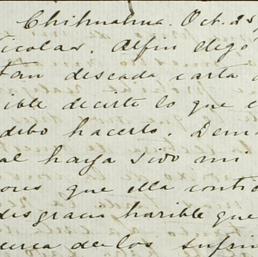 Chihuahua. Oct. 25
icolas. Alfin llegó
tan deseada carta
ible decirte lo que
debo hacerlo. Dem
al haya sido mi
ores que ella conti
desgracia horible que
cerca de los sufrim